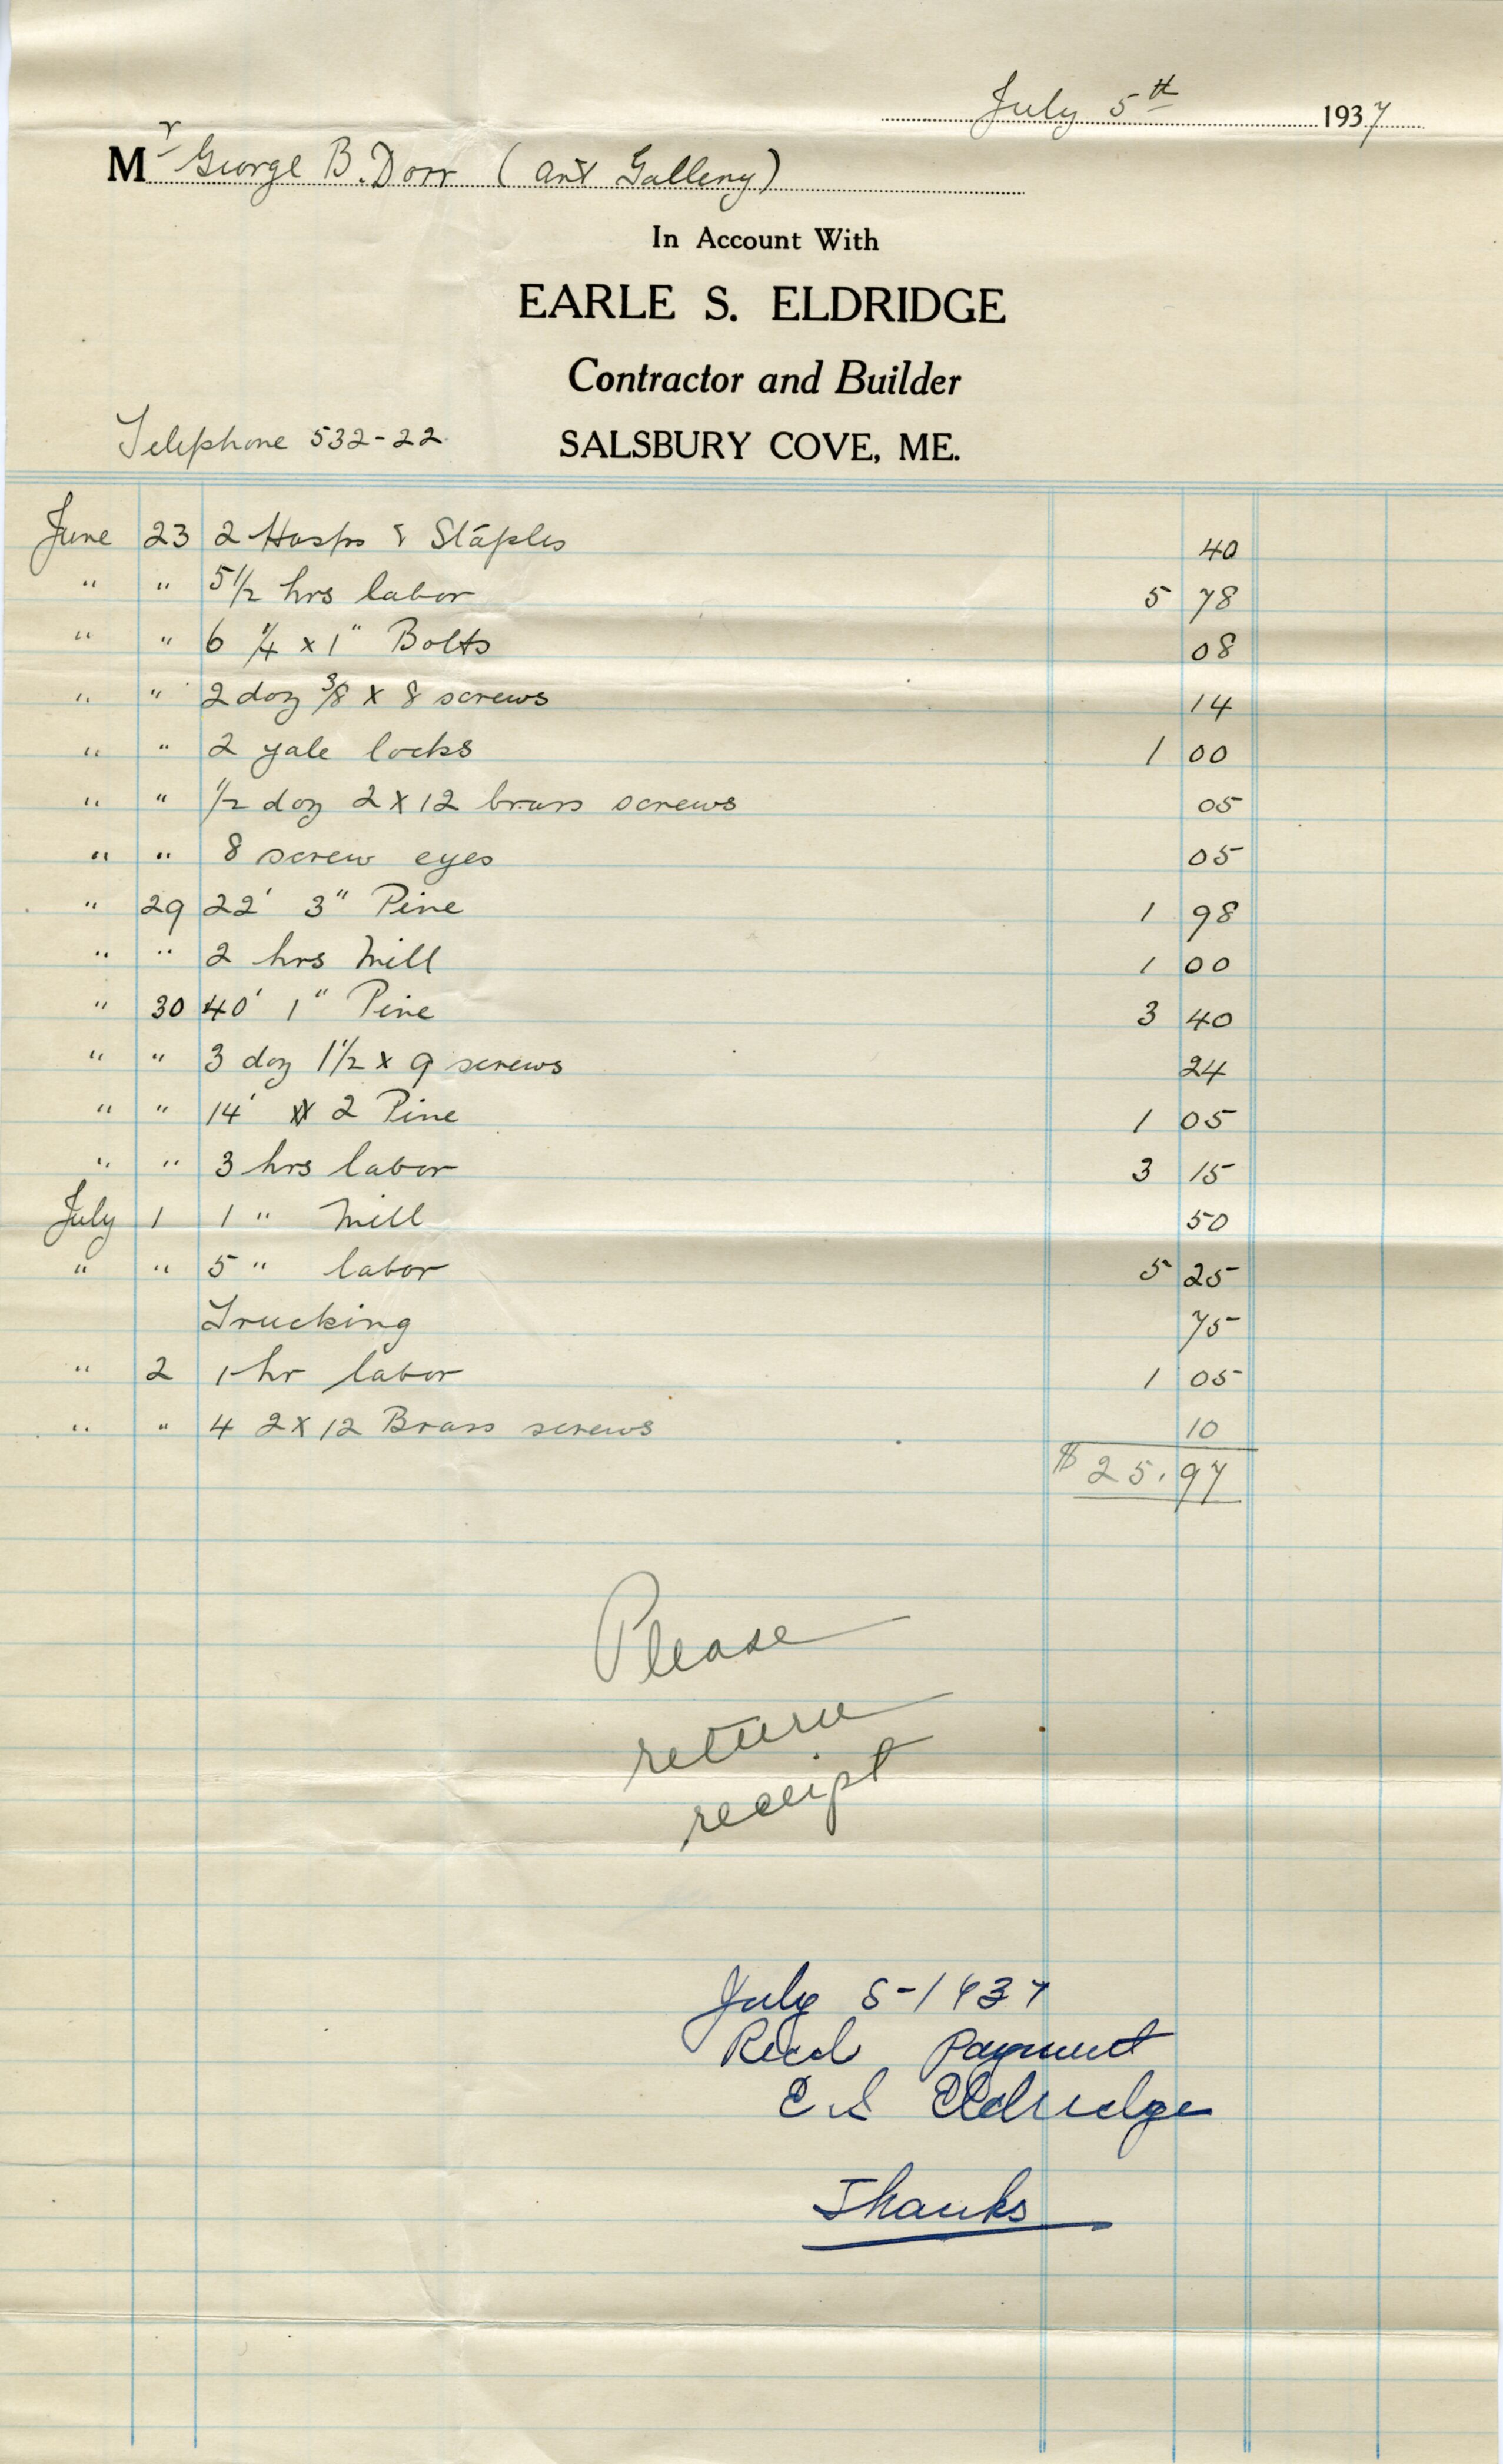 July 5th 1937
Mr George B. Dorr (Art Gallery)
In Account With
EARLE S. ELDRIDGE
Contractor and Builder
Telephone 532-22 SALSBURY COVE, ME.
June 23 2 Hasps & Staples 40
" " 5 1/2 hrs labor 5 78
" " 6 1/4 x 1" Bolts 08
" " 2 doz 3/8 x 8 screws 14
" " 2 yale locks 1 00
" " 1/2 doz 2 x 12 brass screws 05
" " 8 screw eyes 05
" 29 22' 3" Pine 1 98
" " 2 hrs Mill 1 00
" 30 40' 1" Pine 3 40
" " 3 doz 1 1/2 x 9 screws 24
" " 14' 2 Pine 1 05
" " 3 hrs labor 3 15
July 1 1 " Mill 50
" " 5 " labor 5 25
Trucking 75
" 2 1 hr labor 1 05
" " 4 2 x 12 Brass screws 10
$ 25.97
Please
return
receipt
July 5-1937
Recd Payment
E. S Eldridge
Thanks